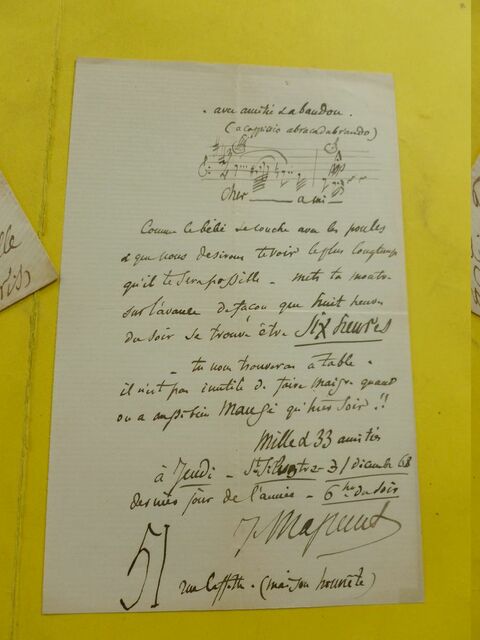 avec amitié & abandon.
(a capriccio abracadabrando)
Cher ami
Comme le bébé se couche avec les poules
& que nous désirons te voir le plus longtemps
qu'il te sera possible - mets ta montre
sur l'avance de façon que huit heures
du soir se trouve être Six heures
- tu nous trouveras à table -
il n'est pas inutile de faire maigre quand
on a aussi bien mangé qu'hier soir !!
Mille & 33 amitiés
à Jeudi - St Sylvestre - 31 décembre 68
dernier jour de l'année - 6 hes du soir
J. Massenet
51
rue Laffitte - (maison honnête)